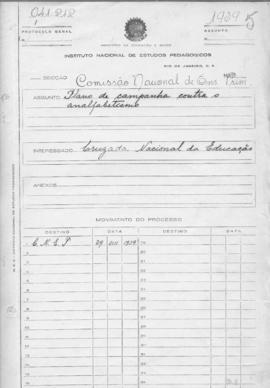 041.818
1939
PROTOCOLO GERAL
ASSUNTO
MINISTÉRIO DA EDUCAÇÃO E SAÚDE
INSTITUTO NACIONAL DE ESTUDOS PEDAGÓGICOS
RIO DE JANEIRO, D. F.
SECÇÃO Comissão Nacional de Ens. Prim.
ASSUNTO: Plano de campanha contra o
analfabetismo
INTERESSADO: Cruzada Nacional da Educação
ANEXOS:
MOVIMENTO DO PROCESSO
DESTINO DATA DESTINO DATA
C. N. E. P. 29 1939